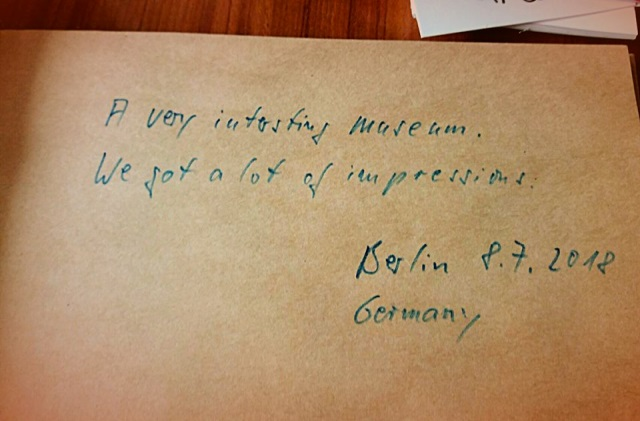 A very intersting museum.
We got a lot of impressions.
Berlin 8.7.2018
Germany